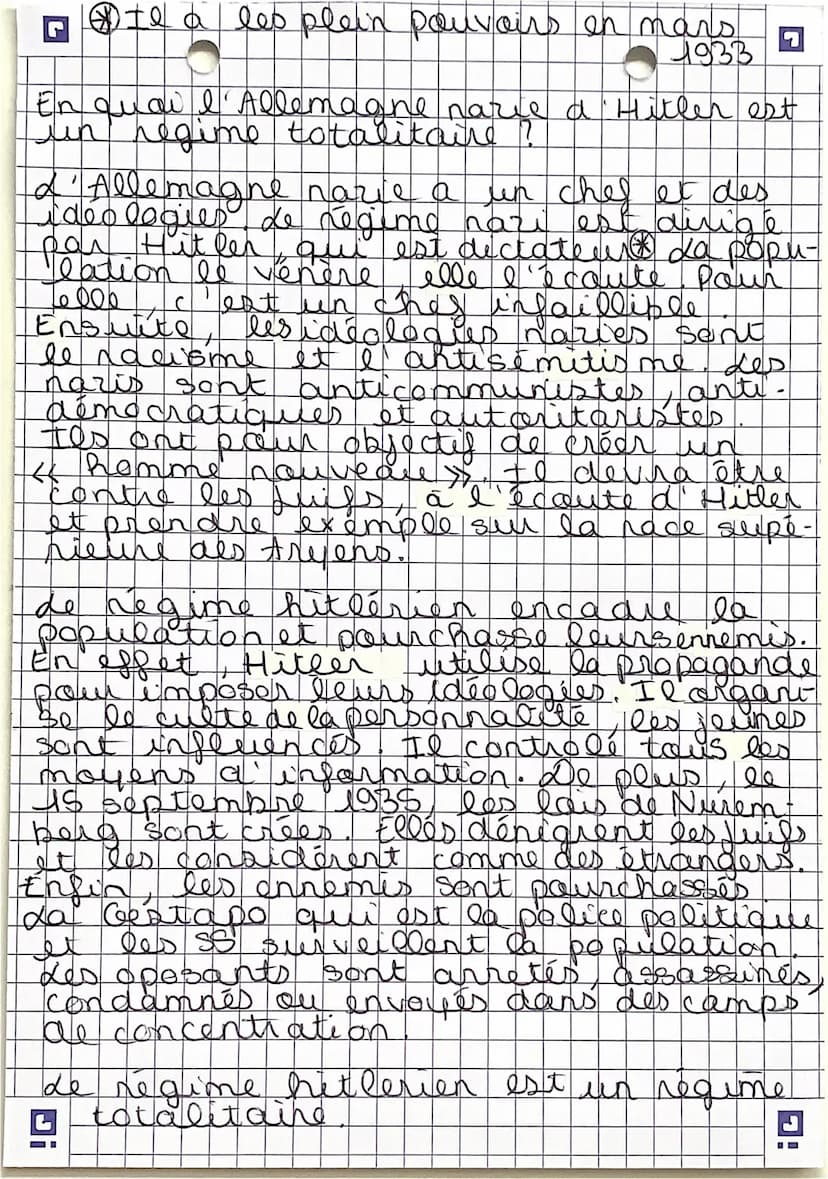 ⊛ Il a les plein pouvoirs en mars
1933
En quoi l'Allemagne nazie d'Hitler est
un régime totalitaire ?
L'Allemagne nazie a un chef et des
idéologies. Le régime nazi est dirigé
par Hitler, qui est dictateur⊛ La popu-
lation le vénère elle l'écoute. Pour
elle, c'est un chef infaillible.
Ensuite, les idéologies nazies sont
le racisme et l'antisémitisme. Les
nazis sont anticommunistes, anti-
démocratiques et autoritaristes.
Ils ont pour objectif de créer un
« homme nouveau ». Il devra être
contre les Juifs, à l'écoute d'Hitler
et prendre exemple sur la race supé-
rieure des Aryens.
Le régime hitlérien encadre la
population et pourchasse leurs ennemis.
En effet, Hitler utilise la propagande
pour imposer leurs idéologies. Il organi-
se le culte de la personnalité, les jeunes
sont influencés. Il contrôle tous les
moyens d'information. De plus, le
15 septembre 1935, les lois de Nurem-
berg sont crées. Elles dénigrent les Juifs
et les considèrent comme des étrangers.
Enfin, les ennemis sont pourchassés
La Gestapo qui est la police politique
et les SS surveillent la population.
Les oposants sont arretés, assassinés,
condamnés ou envoyés dans des camps
de concentration.
Le régime hitlerien est un régime
totalitaire.